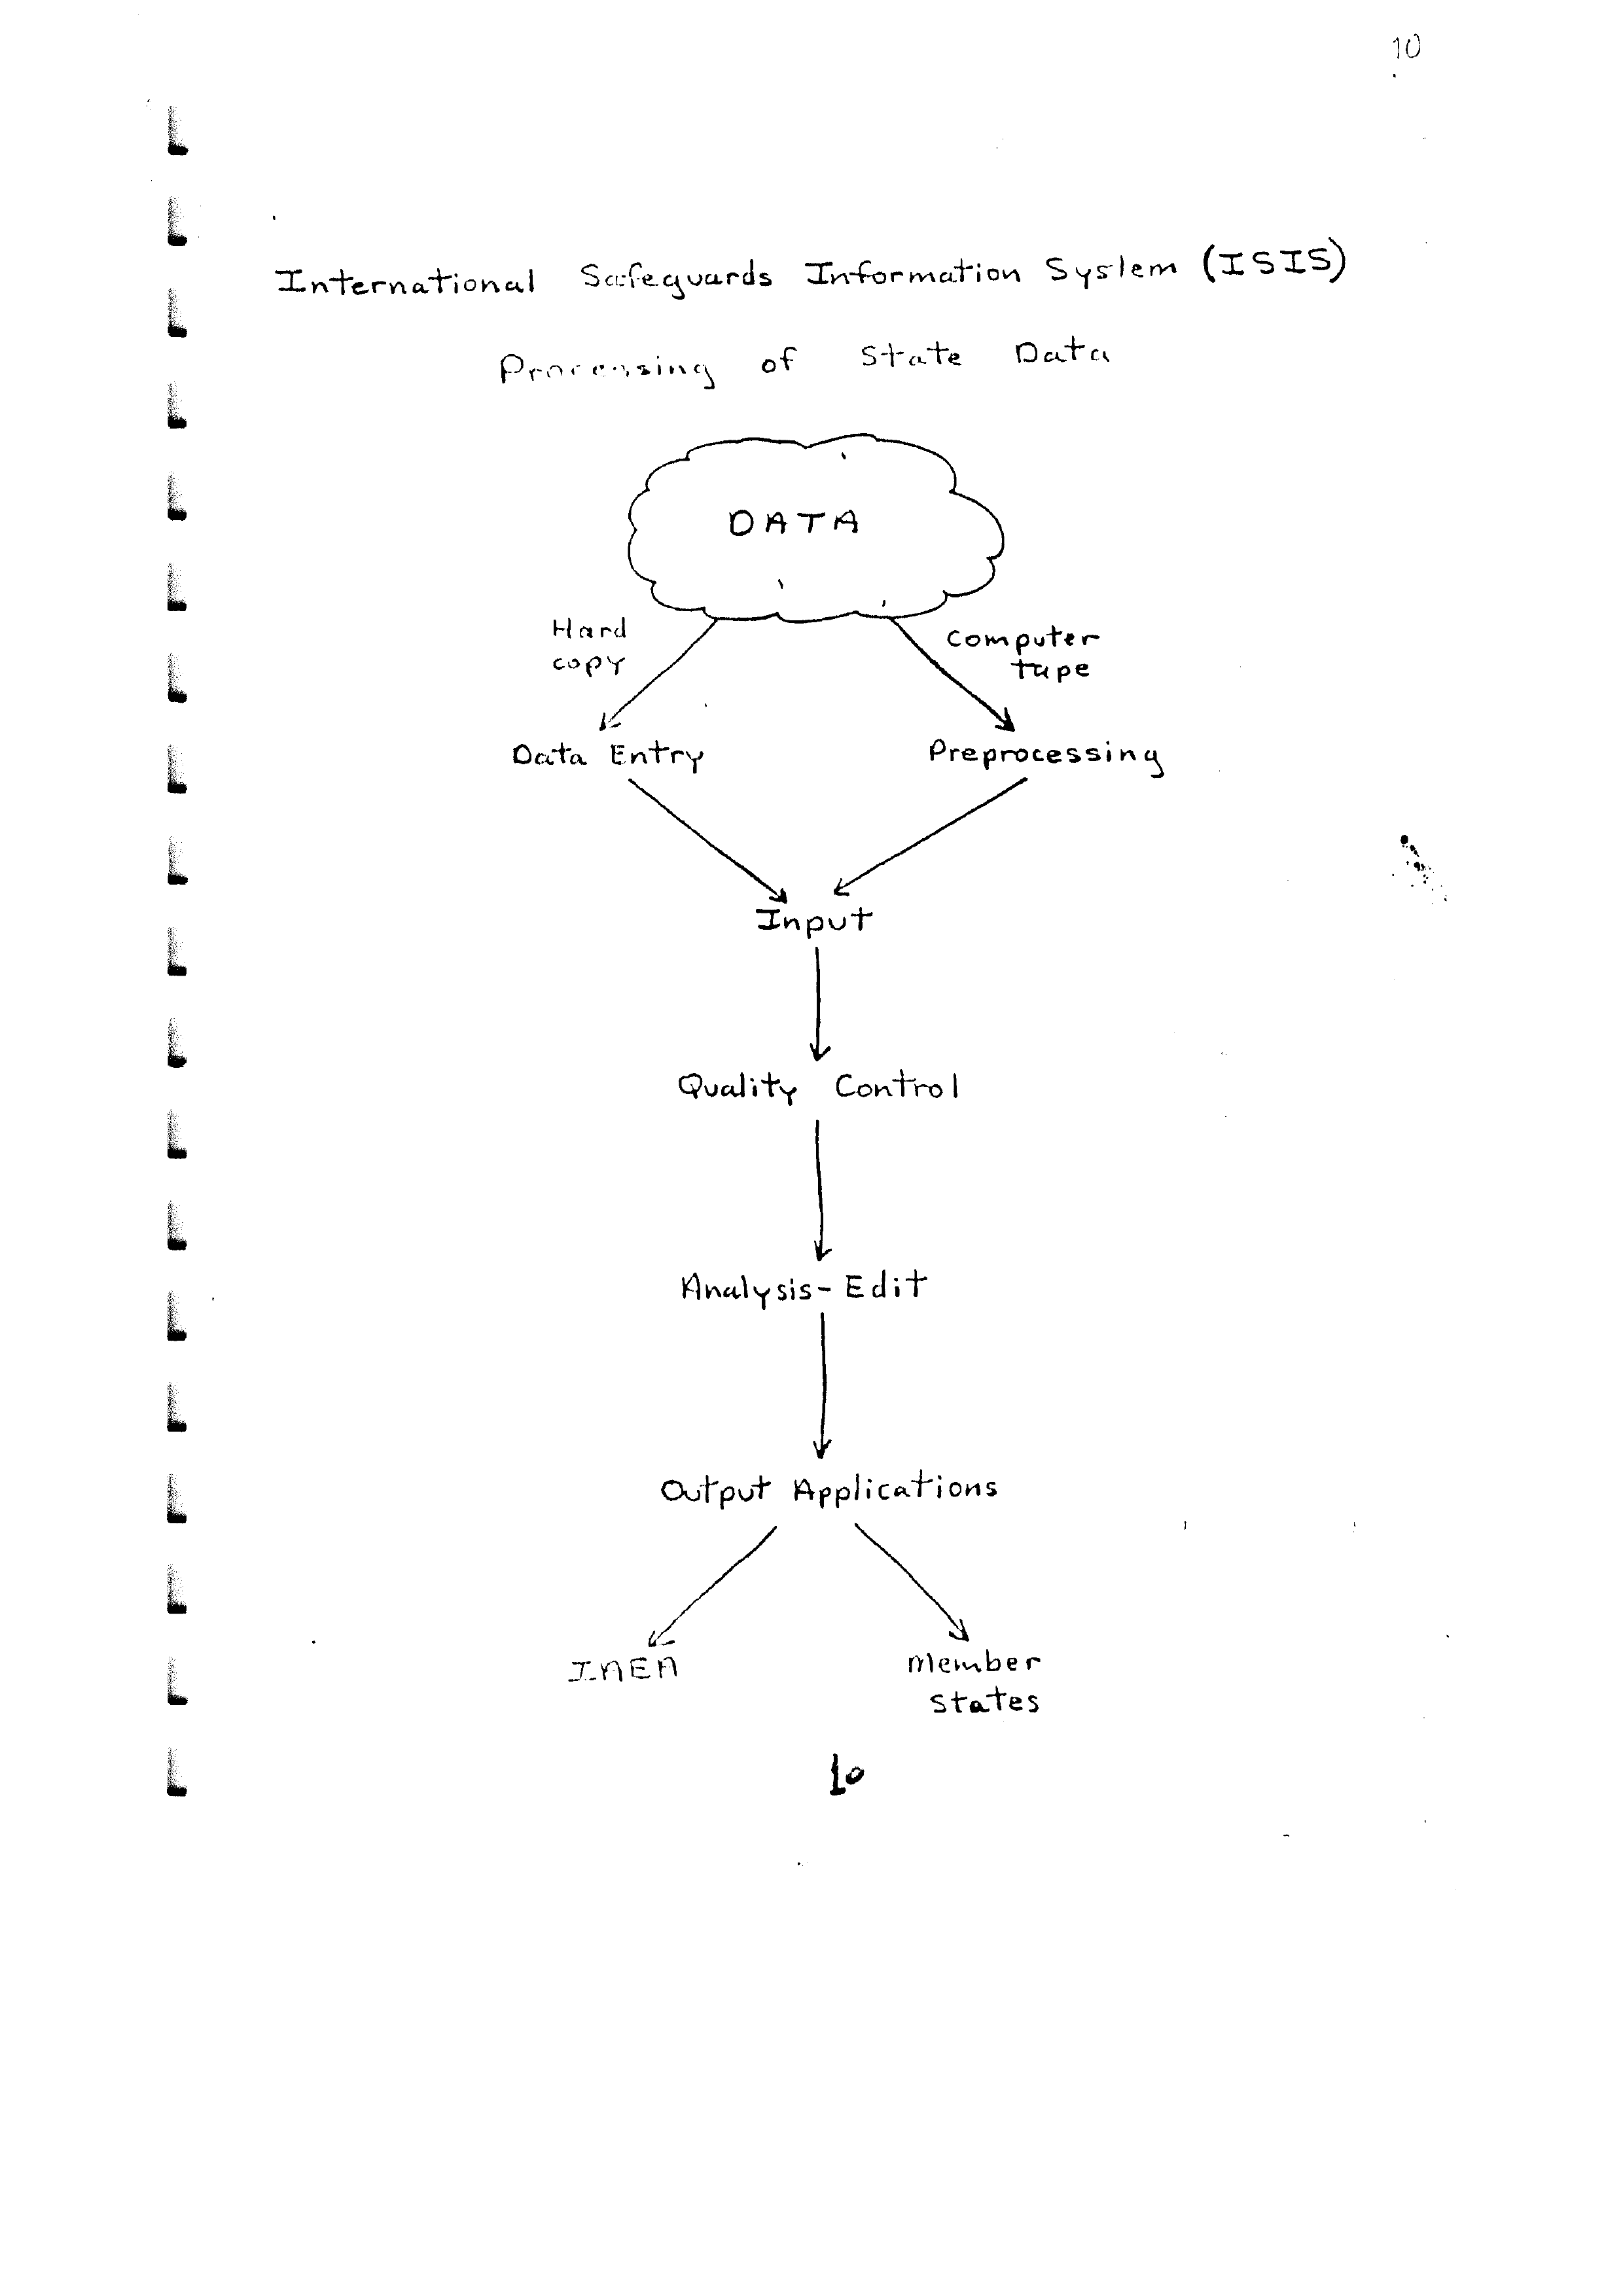 10
International Safeguards Information System (ISIS)
Processing of State Data
DATA
Hard
copy
Computer
tape
Data Entry
Preprocessing
Input
Quality Control
Analysis-Edit
Output Applications
IAEA
Member
States
10